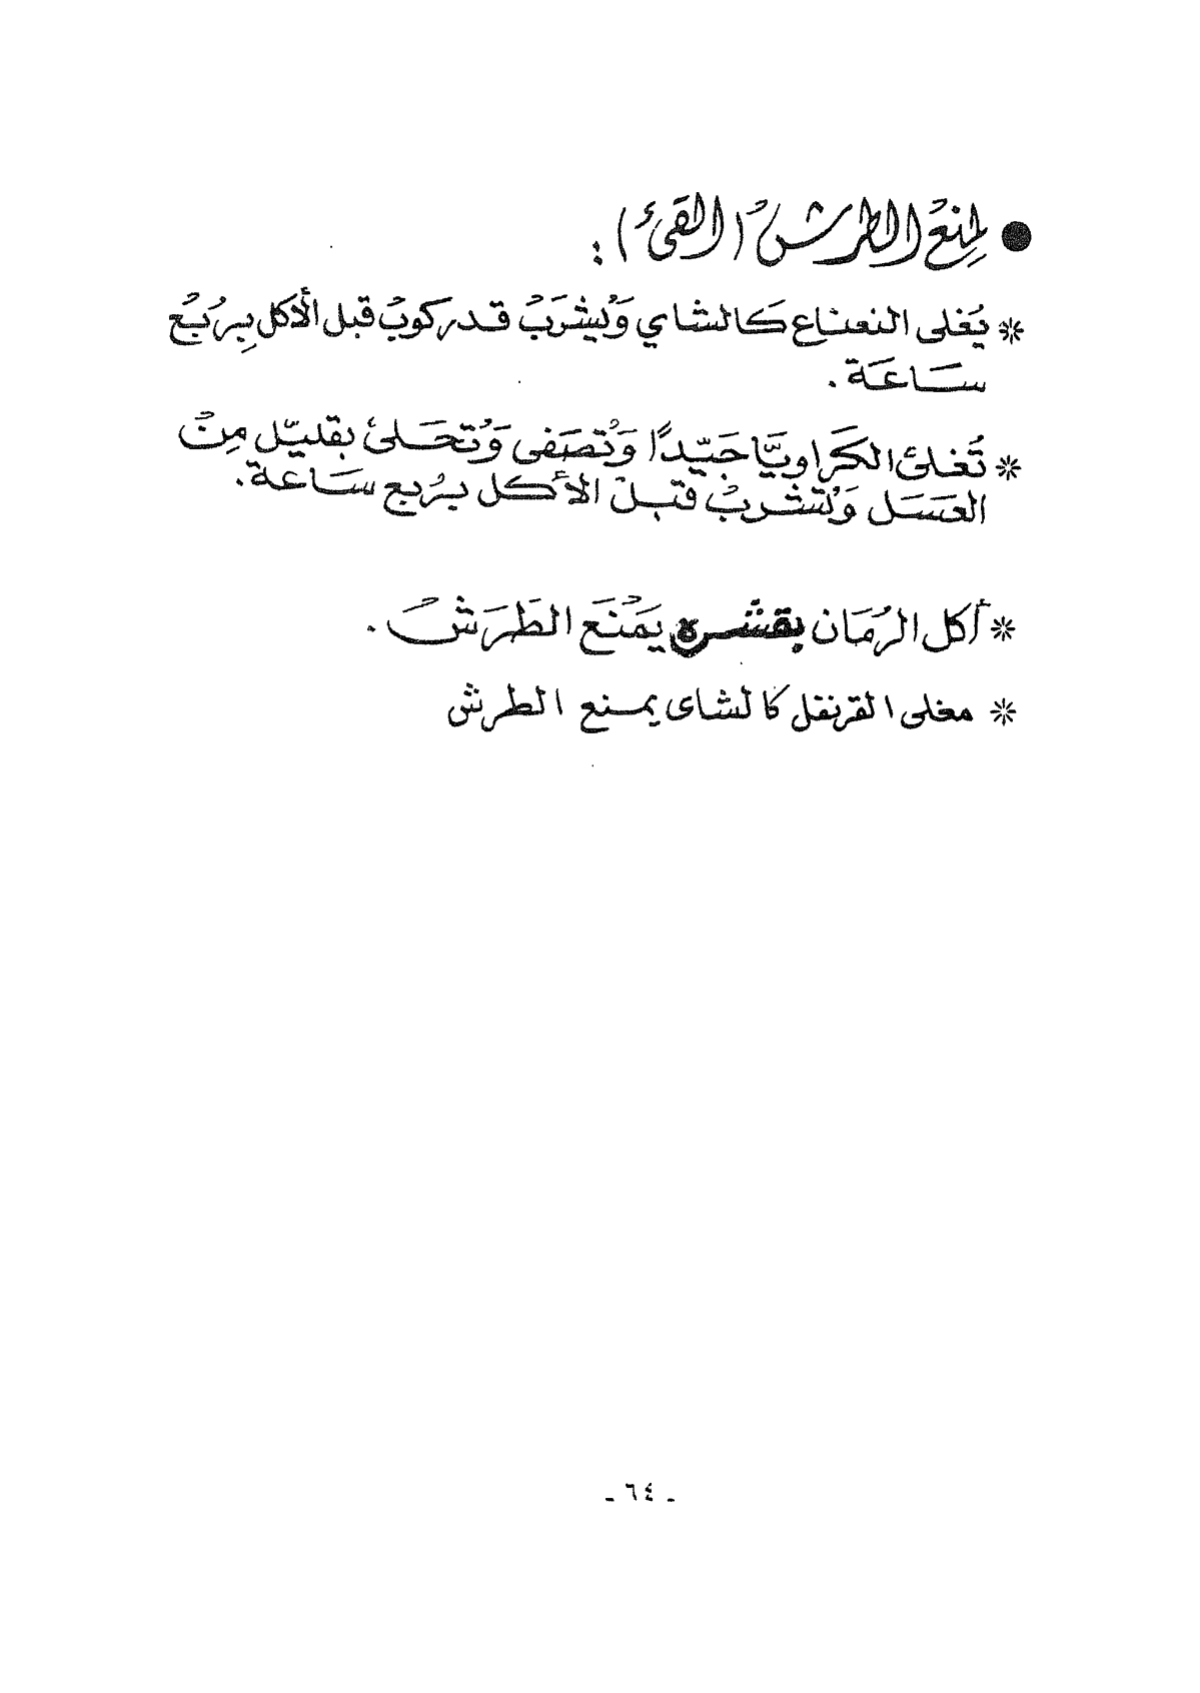 ● لمنع الطرش (القئ) :
* يُغلى النعناع كالشاي وَيُشرَبُ قدر كوبٌ قبل الأكل بِرُبُع
سَاعَة .
* تُغلىُ الكَراويَّا جَيّدًا وَتُصَفى وَتُحَلىُ بقليّل مِنْ
العَسَل وَتُشربُ قبلْ الأكل برُبع سَاعة.
* أكل الرُمَان بقشره يَمْنَع الطَرَشْ .
* مغلى القرنفل كالشاى يمنع الطرش
- ٦٤ -